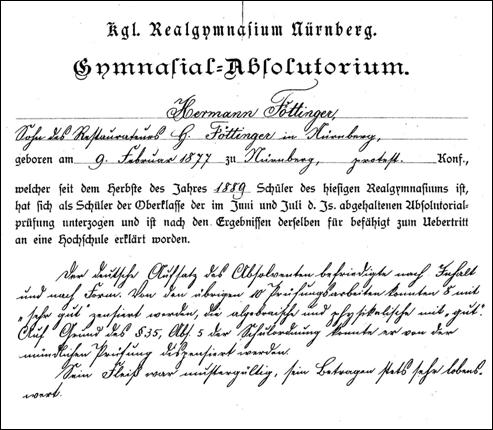 Kgl. Realgymnasium Nürnberg.
Gymnasial-Absolutorium.
Hermann Föttinger,
Sohn des Restaurateurs H. Föttinger in Nürnberg,
geboren am 9. Februar 1877 zu Nürnberg, protest. Konf.,
welcher seit dem Herbste des Jahres 1889 Schüler des hiesigen Realgymnasiums ist,
hat sich als Schüler der Oberklasse der im Juni und Juli d. Js. abgehaltenen Absolutorial-
prüfung unterzogen und ist nach den Ergebnissen derselben für befähigt zum Uebertritt
an eine Hochschule erklärt worden.
Der deutsche Aufsatz des Absolventen befriedigte nach Inhalt
und nach Form. Von den übrigen 10 Prüfungsarbeiten konnten 8 mit
„sehr gut" zensiert werden, die algebraische und physikalische mit „gut".
Auf Grund des § 35, Abs. 5 der Schulordnung konnte er von der
mündlichen Prüfung dispensiert werden.
Sein Fleiß war mustergültig, sein Betragen stets sehr lobens-
wert.